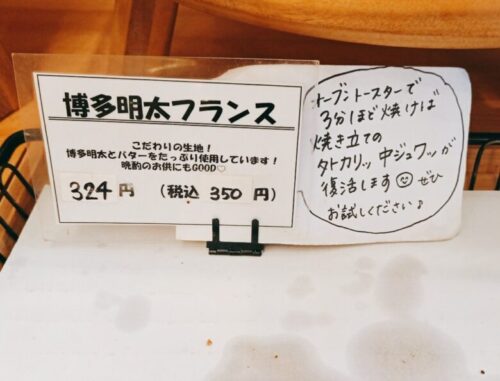 博多明太フランス
こだわりの生地！
博多明太とバターをたっぷり使用しています！
晩酌のお供にもGOOD♡
324円 （税込 350 円）
オーブントースターで
3分ほど焼けば
焼き立ての
外カリッ 中ジュワッが
復活します☺ ぜひ
お試しください♪